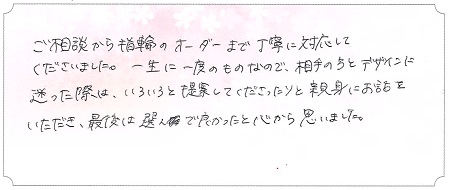 ご相談から指輪のオーダーまで丁寧に対応して
くださいました。一生に一度のものなので、相手のもとデザインに
迷った際は、いろいろと提案してくださったりと親身にお話を
いただき、最後は選んで良かったと心から思いました。